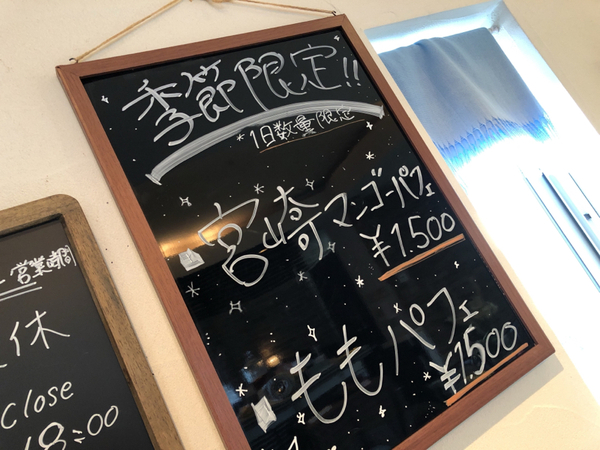 季節限定!!
*1日数量限定
宮崎マンゴーパフェ
¥1500
ももパフェ
¥1500
営業時間
休
Close
18:00